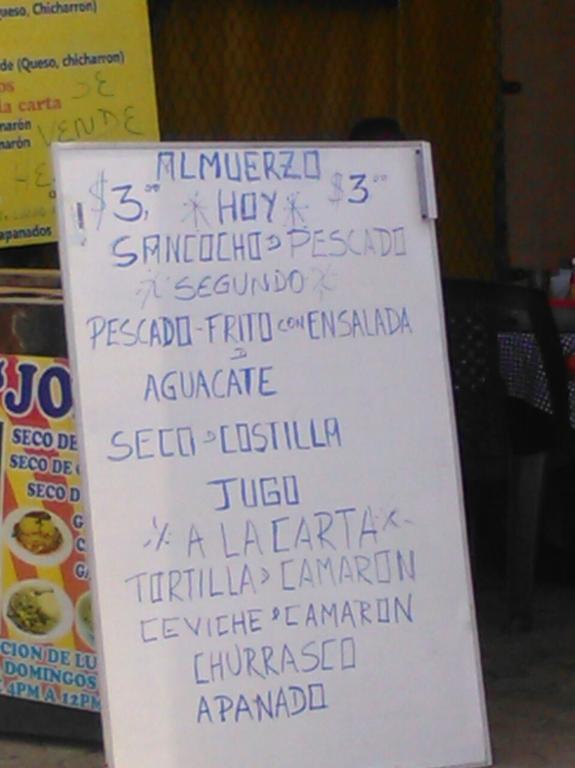 ueso, Chicharron)
de (Queso, chicharron)
os
la carta
marón
marón
SE
VENDE
apanados
ALMUERZO
$3,00 *HOY* $3.00
SANCOCHO D PESCADO
*SEGUNDO*
PESCADO-FRITO CON ENSALADA
D
AGUACATE
SECO D COSTILLA
JUGO
A LA CARTA
TORTILLA D CAMARON
CEVICHE D CAMARON
CHURRASCO
APANADO
JO
SECO DE
SECO DE
SECO D
G
C
GA
CION DE LU
DOMINGOS
4PM A 12PM